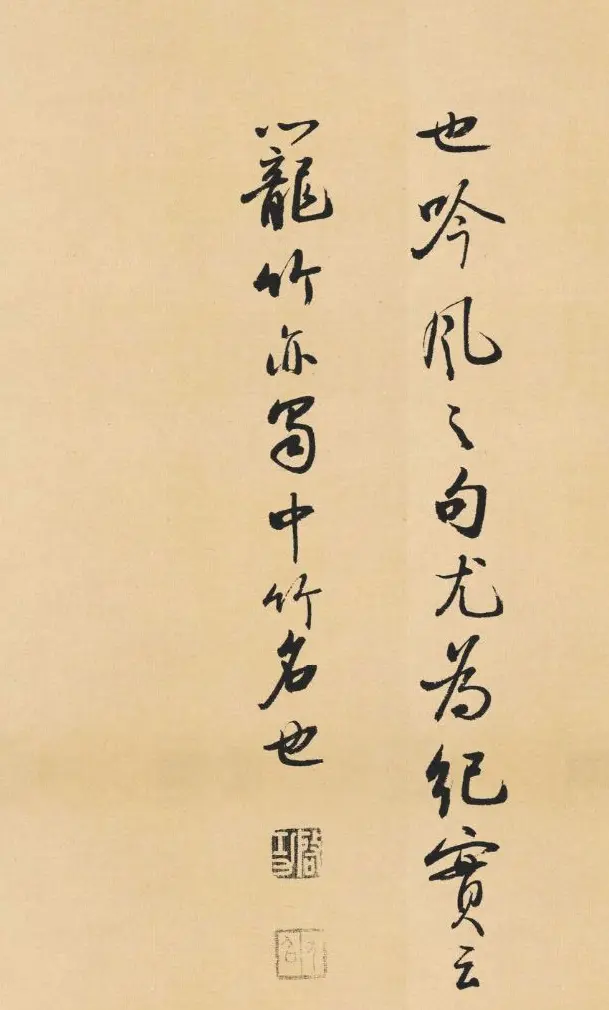 也吟風之句尤為紀實云
籠竹亦蜀中竹名也